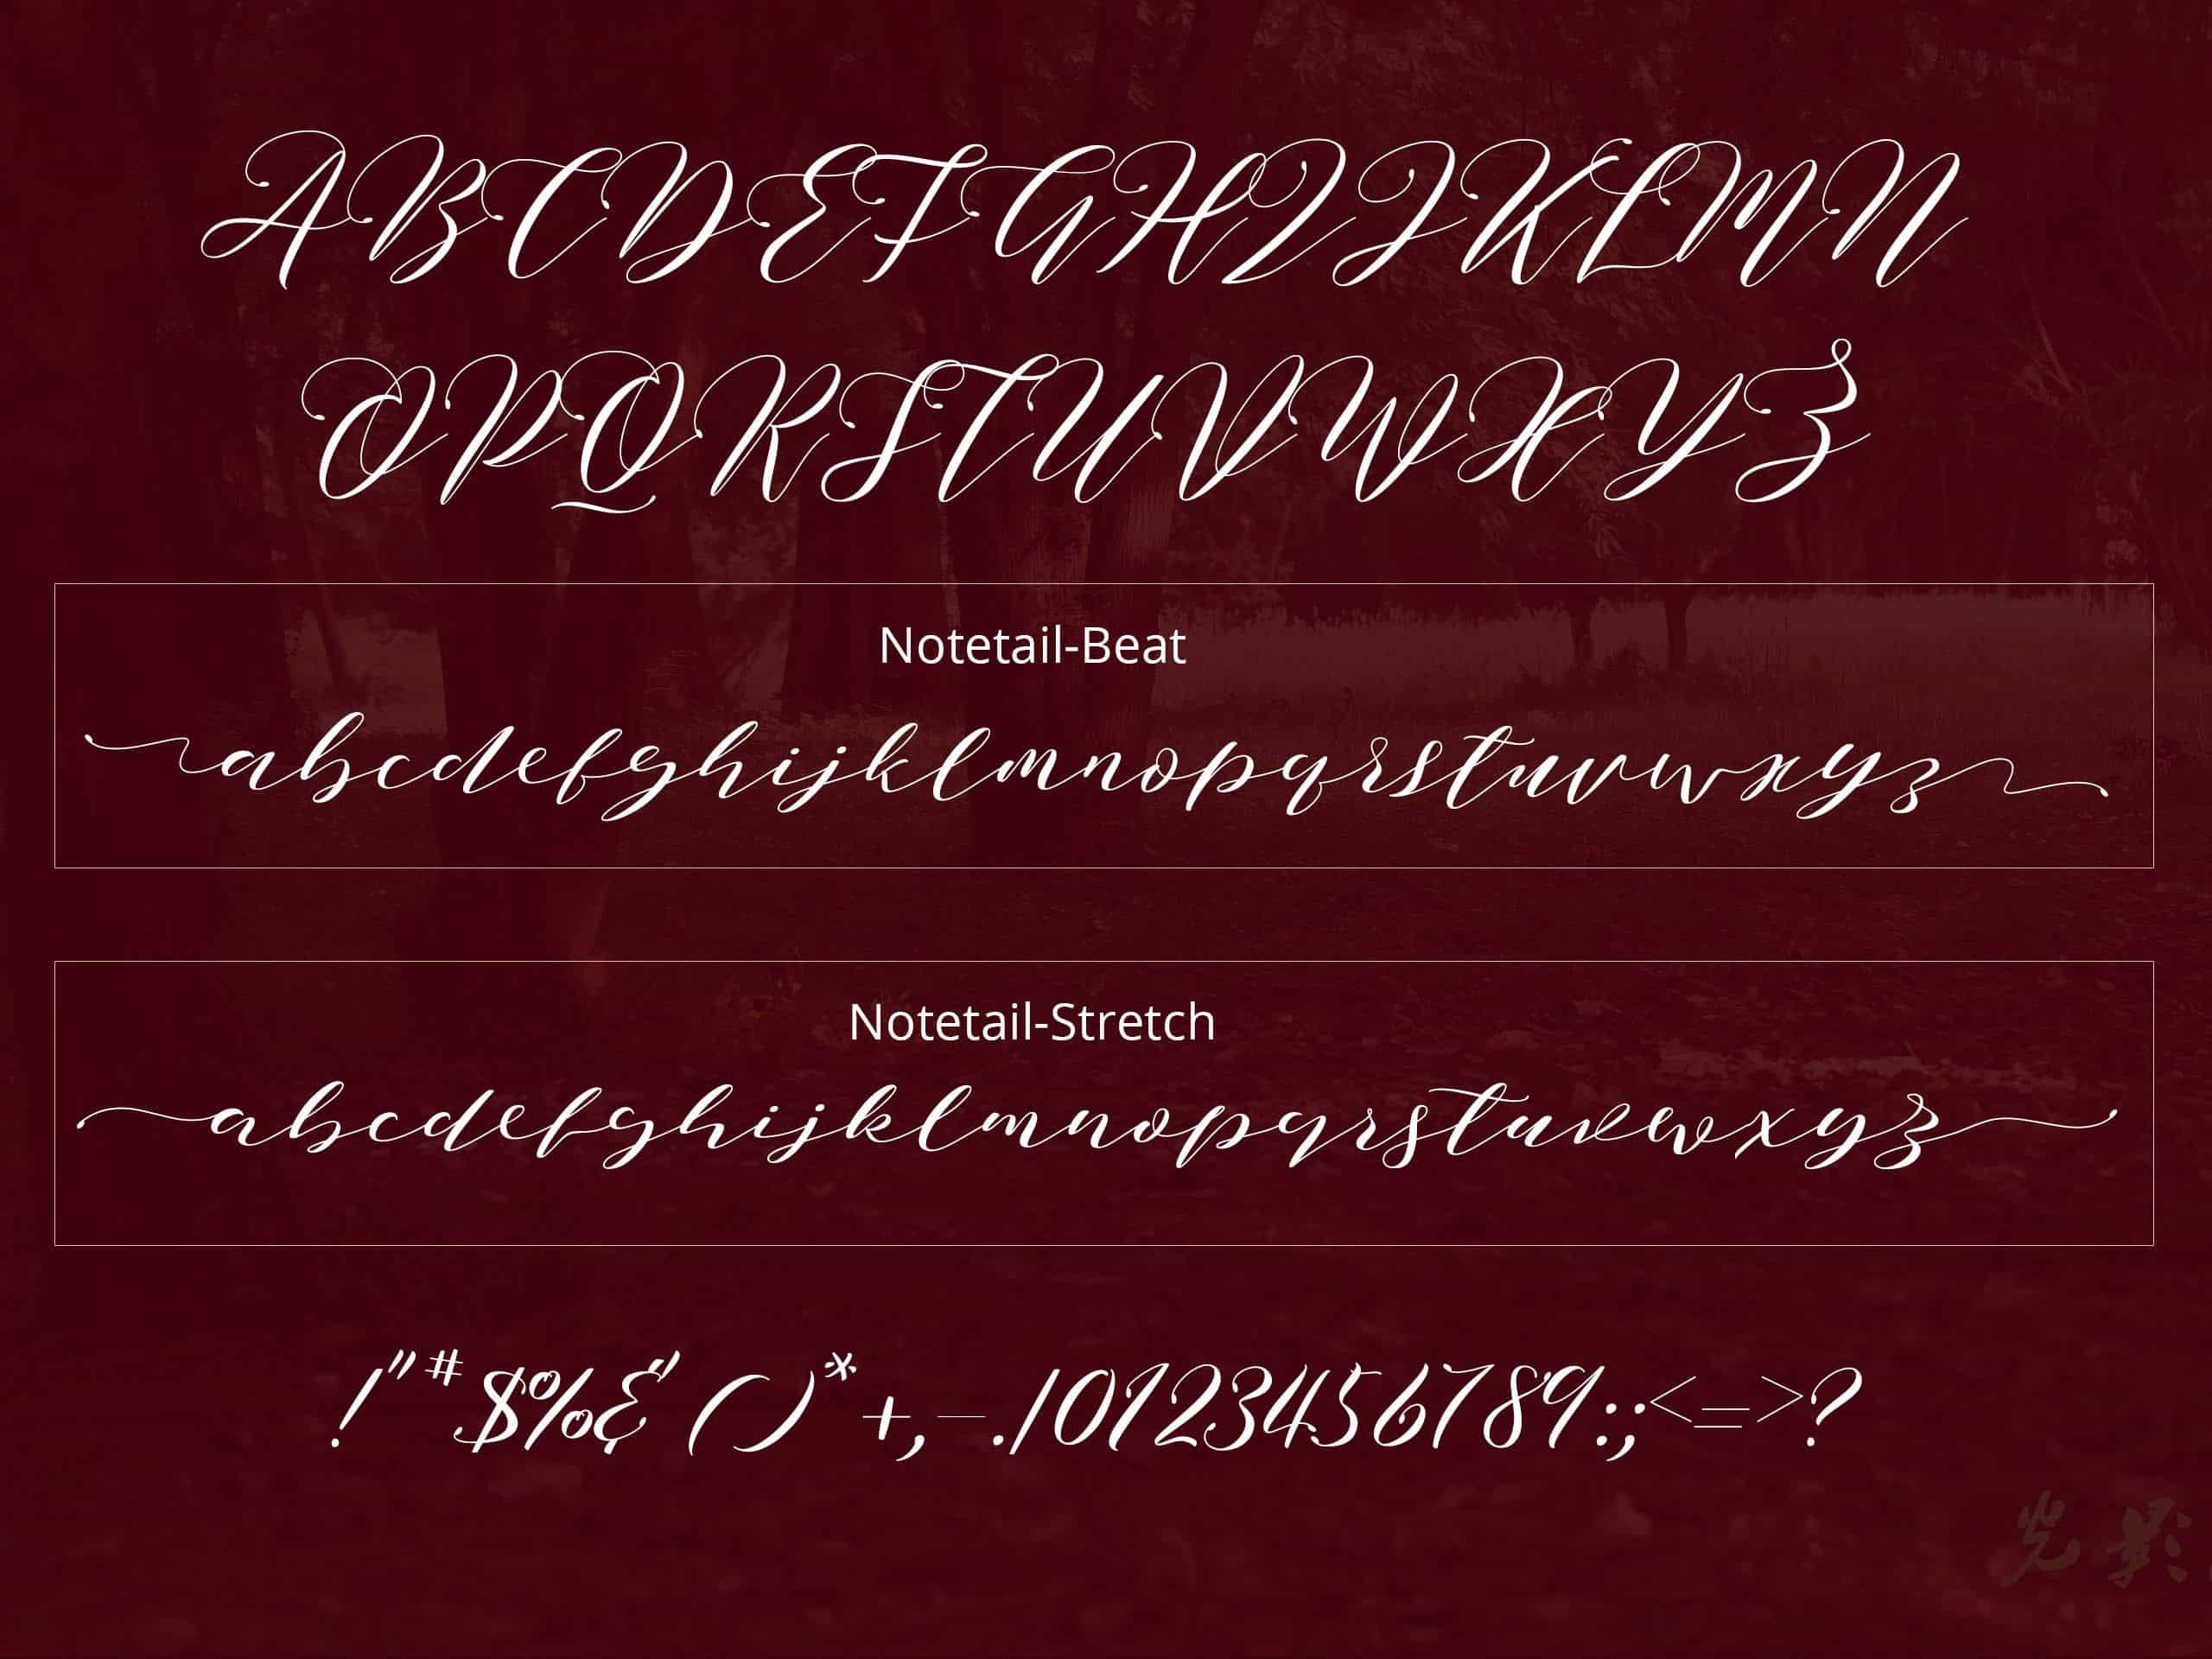 ABCDEFGHIJKLMN
OPQRSTUVWXYZ
Notetail-Beat
abcdefghijklmnopqrstuvwxyz
Notetail-Stretch
abcdefghijklmnopqrstuvwxyz
!"#$%&'()*+,-./0123456789:;<=>?
光影